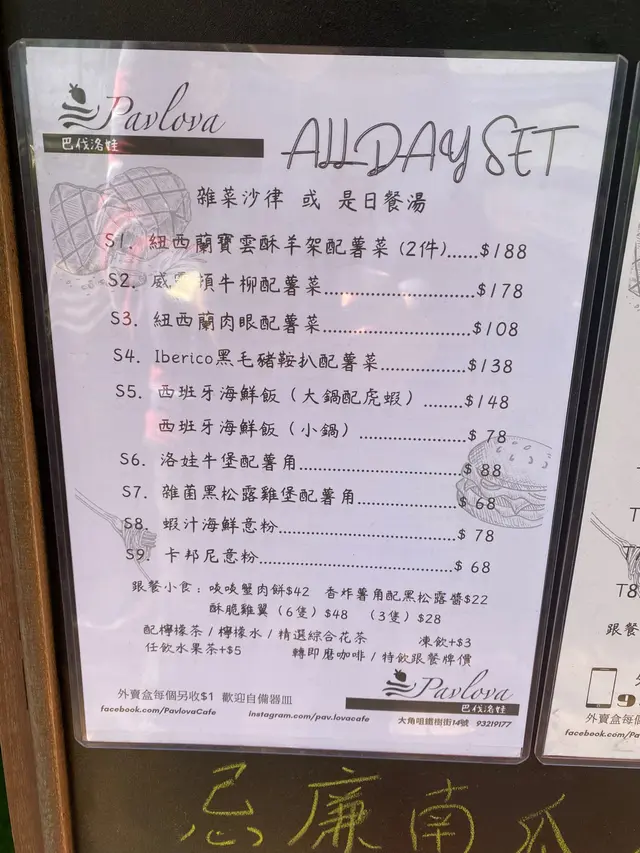 Pavlova
巴伐洛娃
ALL DAY SET
雜菜沙律 或 是日餐湯
S1. 紐西蘭寶雲酥羊架配薯菜 (2件)......$188
S2. 威 頓牛柳配薯菜..............................$178
S3. 紐西蘭肉眼配薯菜..............................$108
S4. Iberico黑毛豬鞍扒配薯菜.................$138
S5. 西班牙海鮮飯（大鍋配虎蝦）.......$148
西班牙海鮮飯（小鍋）....................$ 78
S6. 洛娃牛堡配薯角..............................$ 88
S7. 雜菌黑松露雞堡配薯角....................$ 68
S8. 蝦汁海鮮意粉..............................$ 78
S9. 卡邦尼意粉..............................$ 68
跟餐小食：啖啖蟹肉餅$42 香炸薯角配黑松露醬$22
酥脆雞翼（6隻）$48 （3隻）$28
配檸檬茶 / 檸檬水 / 精選綜合花茶 凍飲+$3
任飲水果茶+$5 轉即磨咖啡 / 特飲跟餐牌價
外賣盒每個另收$1 歡迎自備器皿
facebook.com/PavlovaCafe instagram.com/pav.lovacafe
Pavlova
巴伐洛娃
大角咀鐵樹街14號 93219177
T8
跟餐
外賣盒每個
facebook.com/Pa
忌廉南瓜